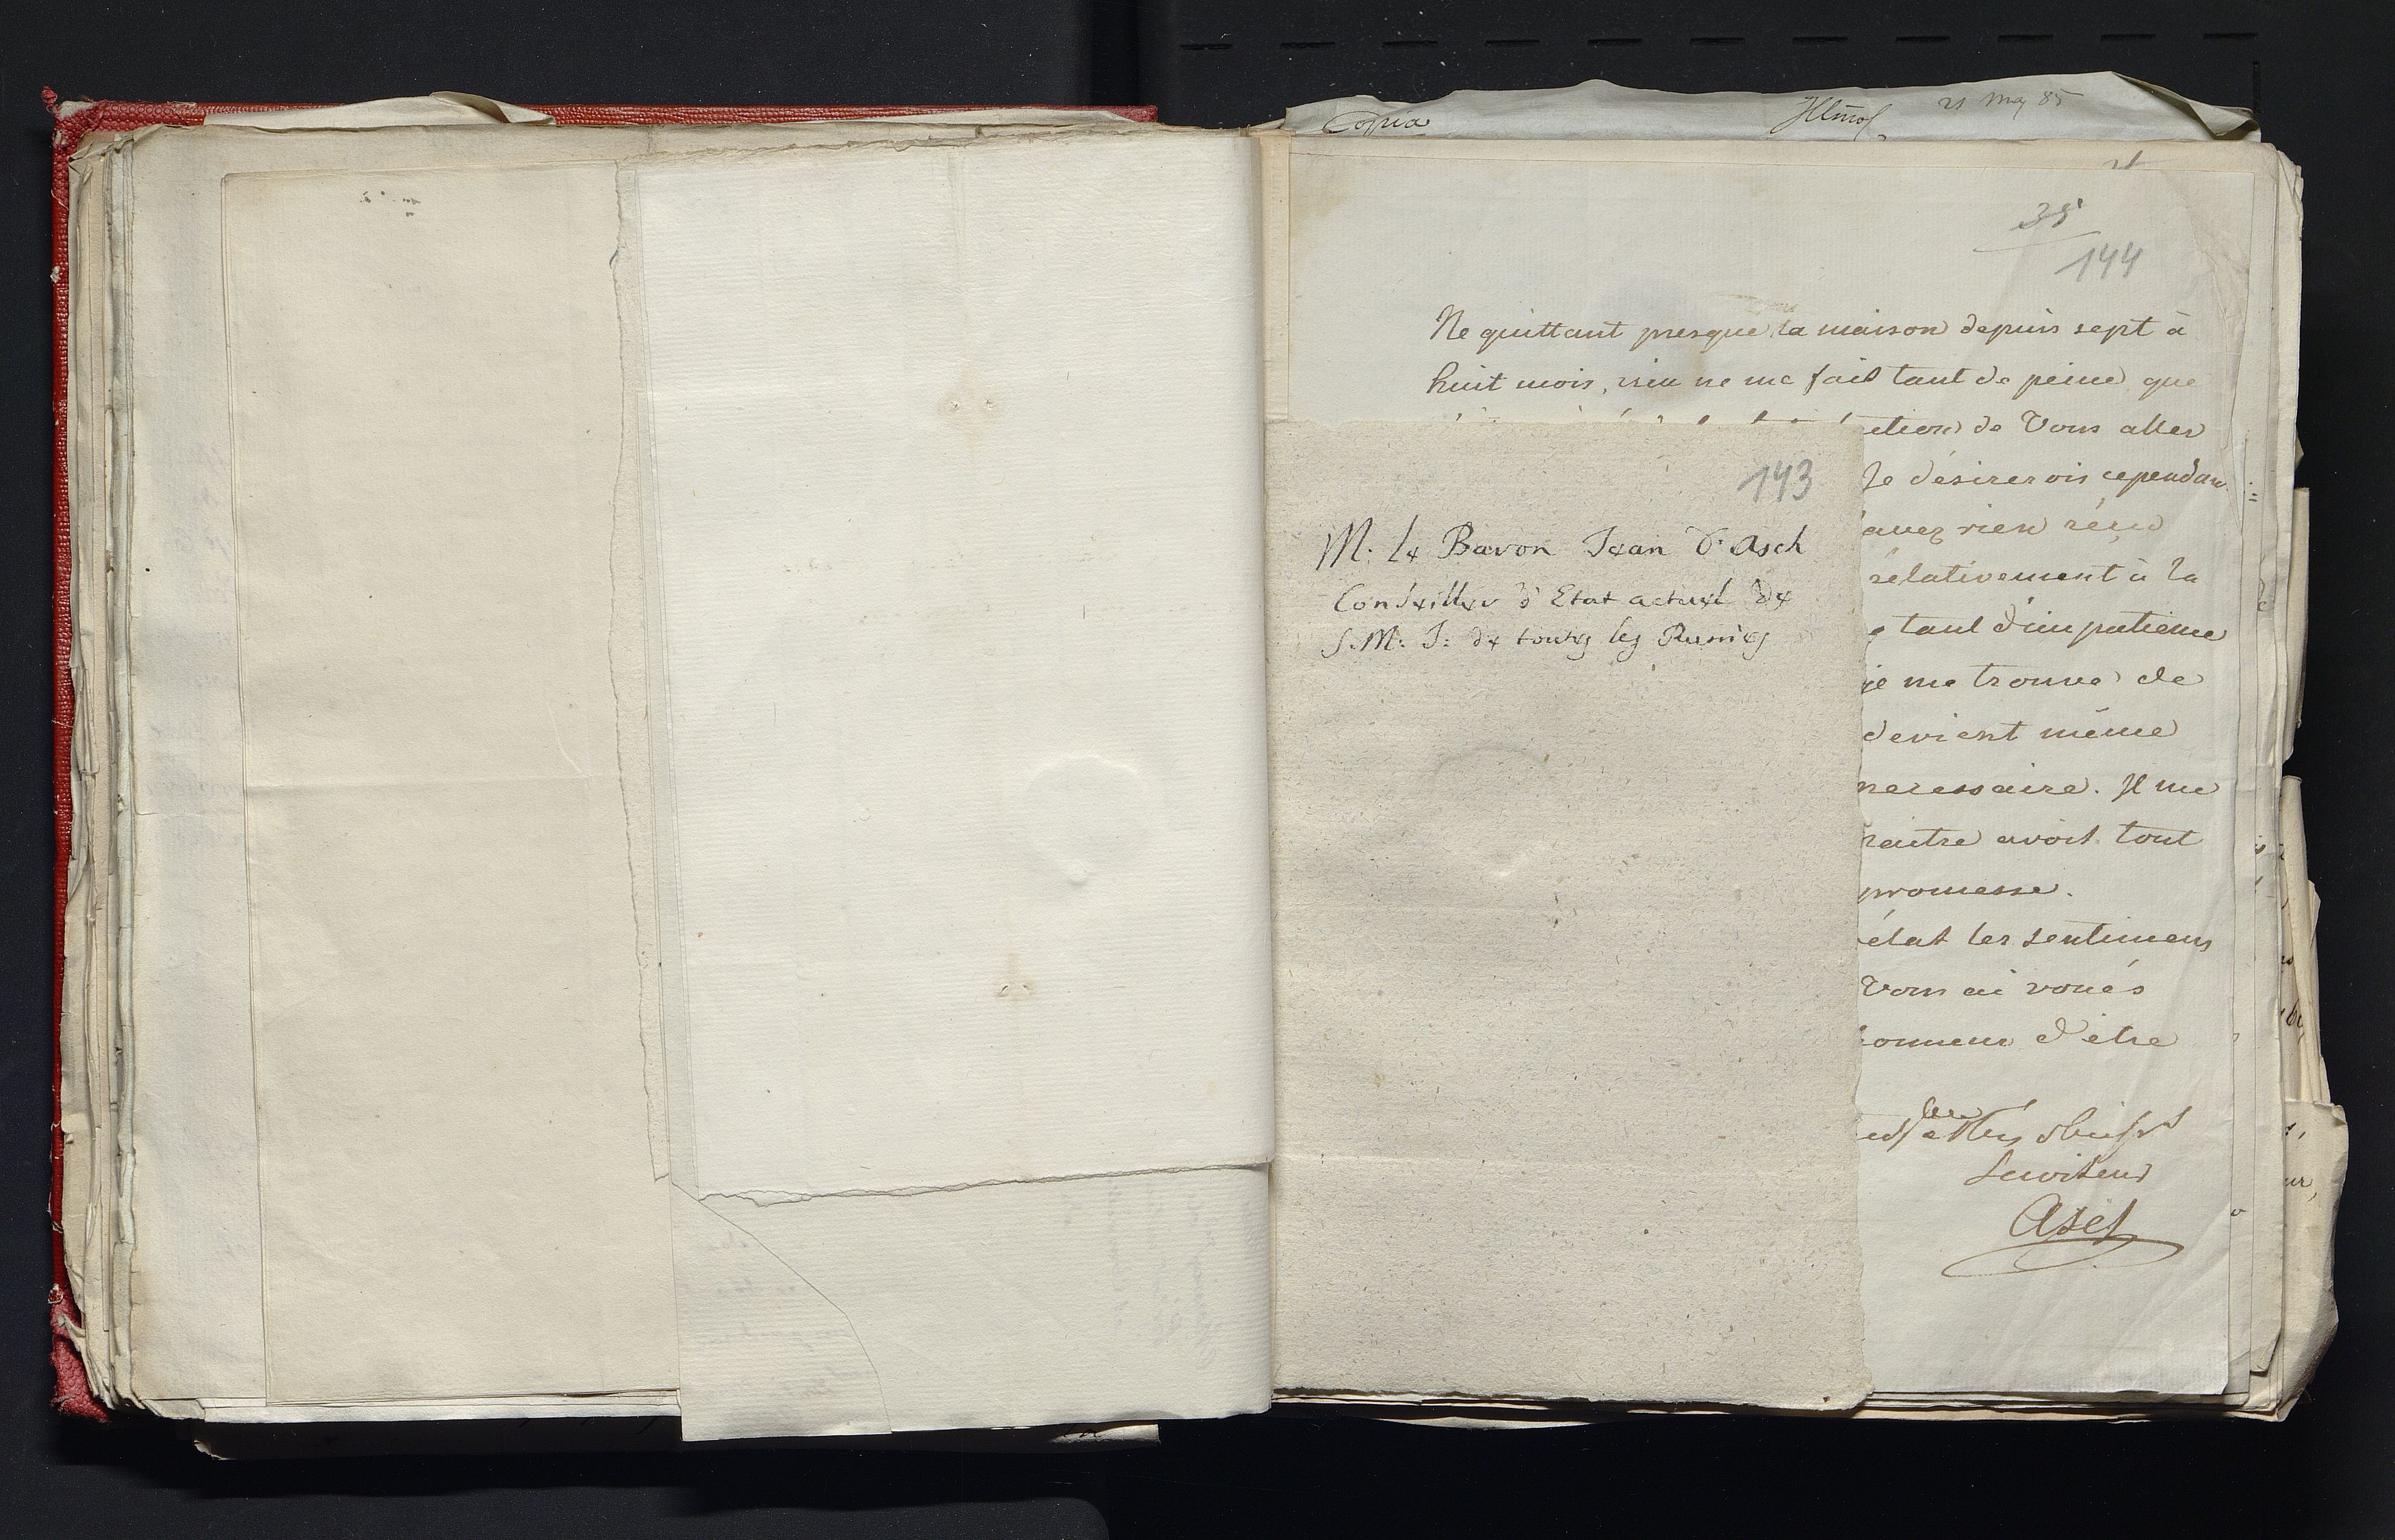 Copia
21 May 85
35
144
Ne quittant presque la maison depuis sept à
huit mois, rien ne me fait tant de peine que
de Vous aller
Je désirerois cependan
avez rien réçu
rélativement à la
tant d'impatience
je me trouve de
devient même
necessaire. Il me
avoit tout
promesse.
état les sentimens
Vous ai voués
d'être
Serviteur
Asch
143
M. le Baron Jean d'Asch
Conseiller d'Etat actuel de
S. M. I: de toutes les Russies